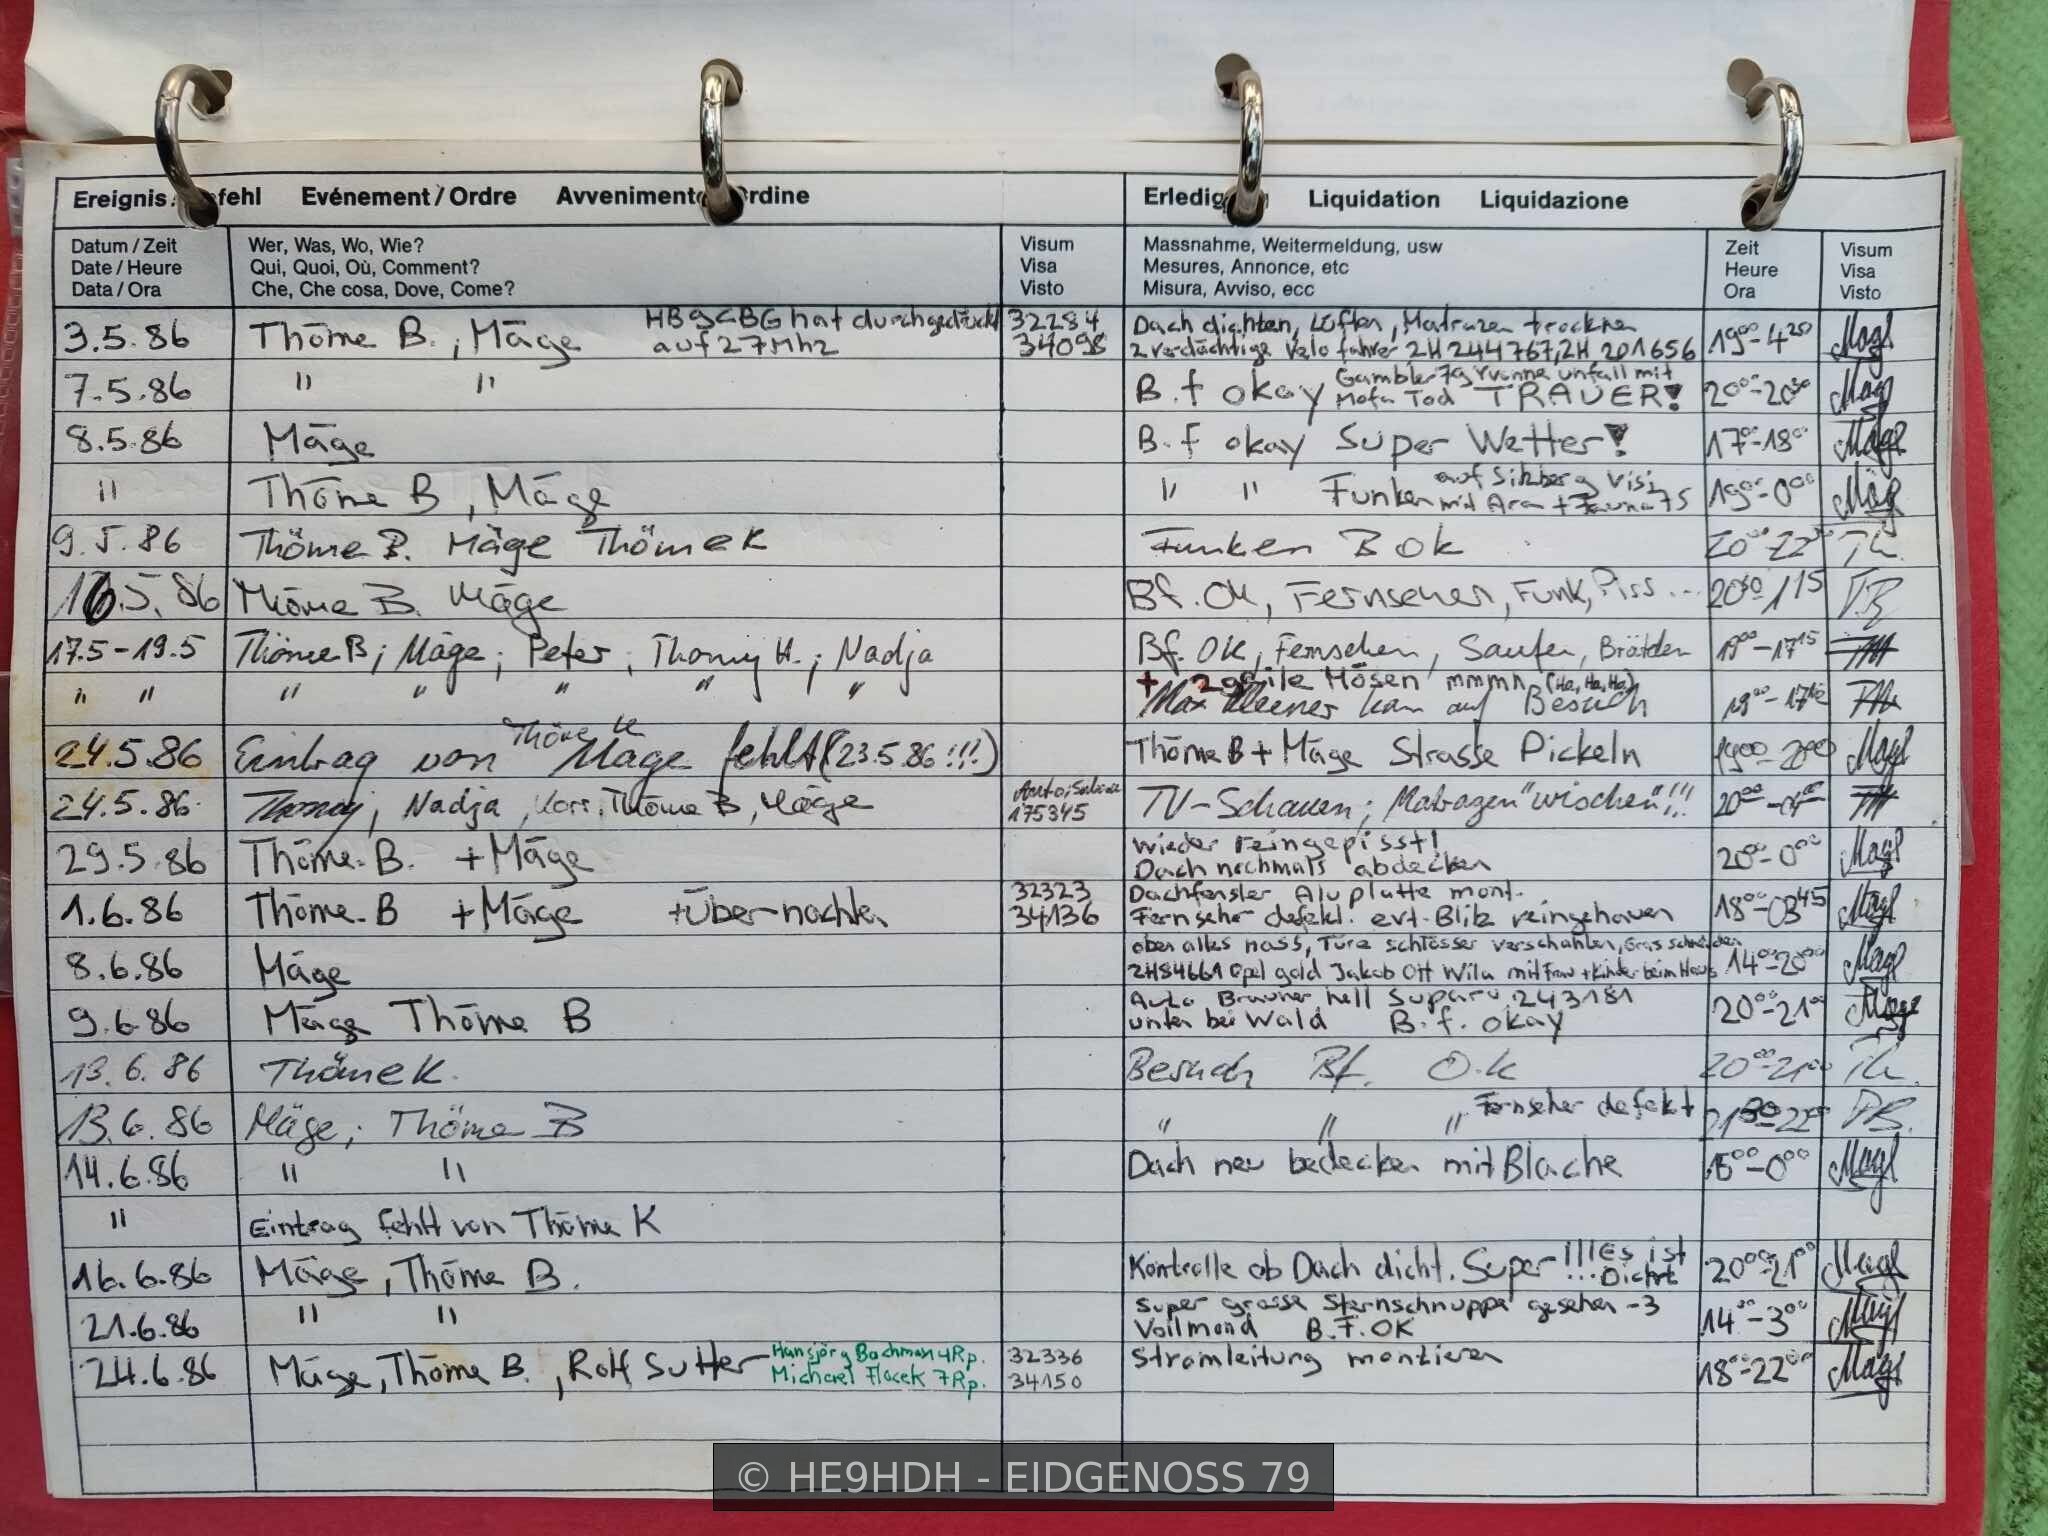 Ereignis fehl Evénement / Ordre Avvenimento Ordine Erledig Liquidation Liquidazione
Datum / Zeit Wer, Was, Wo, Wie? Visum Massnahme, Weitermeldung, usw Zeit Visum
Date / Heure Qui, Quoi, Où, Comment? Visa Mesures, Annonce, etc Heure Visa
Data / Ora Che, Che cosa, Dove, Come? Visto Misura, Avviso, ecc Ora Visto
HB9CBG hat durchgedrückt 32284 Dach dichten, Lüften, Matrazen trocknen
3.5.86 Thöme B., Mäge auf 27 Mhz 34098 2 verdächtige Velofahrer ZH 244767, ZH 201656 19⁰⁰-4²⁰ Mägi
7.5.86 " " B.f okay Gambler 79 Yvonne unfall mit Mofa Tod TRAUER! 20⁰⁰-20³⁰
8.5.86 Mäge B.f okay Super Wetter! 17⁰⁰-18⁰⁰ Mäge
" Thöme B, Mäge " " Funken auf Sitzberg Visi mit Ara + Fauna 75 19⁰⁰-0⁰⁰
9.5.86 Thöme B. Mäge Thöme K Funken B Ok Th.
16.5.86 Thöme B. Mäge Bf. Ok, Fernsehen, Funk, Piss... 1¹⁵ TB
17.5-19.5 Thöme B; Mäge; Peter; Thomy H.; Nadja Bf. OK, Fernsehen, Saufen, Brätlen 19⁰⁰-17¹⁵
" " " " " " " + 2 geile Mösen mmmm (Ha, Ha, Ha)
Max Kleiner kam auf Besuch
24.5.86 Eintrag von Thöme K Mäge fehlt (23.5.86 !!!) Thöme B + Mäge Strasse Pickeln
24.5.86 Thomy, Nadja, Thöme B, Mäge 175345 TV-Schauen; Matrazen "wischen"!!!
29.5.86 Thöme. B. + Mäge wieder reingepisst!
Dach nochmals abdecken 20⁰⁰-0⁰⁰
32323 Dachfenster Aluplatte mont.
1.6.86 Thöme. B + Mäge + Übernachten 34136 Fernseher defekt. evt. Blitz reingehauen 18⁰⁰-03⁴⁵
oben alles nass, Türe schlösser verschahlen, Gras schneiden
8.6.86 Mäge ZH84661 Opel gold Jakob Ott Wila mit Frau + Kinder beim Haus 14⁰⁰-20⁰⁰
Auto Brauner hell Suparu 243181
9.6.86 Mäge Thöme B unten bei Wald B.f. okay 20⁰⁰-21⁰⁰ Mäge
13.6.86 Thöme K. Besuch Bf. O.k 20⁰⁰-21⁰⁰ Th.
13.6.86 Mäge; Thöme B " " " Fernseher defekt TB.
14.6.86 " " Dach neu bedecken mit Blache 15⁰⁰-0⁰⁰
" Eintrag fehlt von Thöme K
16.6.86 Mäge, Thöme B. Kontrolle ob Dach dicht. Super!!! Es ist ... Dicht 20⁰⁰-21⁰⁰
21.6.86 " " super grosse Sternschnuppe gesehen -3
Vollmond B.F.OK 14⁰⁰-3⁰⁰
24.6.86 Mäge, Thöme B., Rolf Sutter Hansjörg Bachmann 4Rp. 32336 Stromleitung montieren 18⁰⁰-22⁰⁰
Michael Flocek 7Rp. 34150
© HE9HDH - EIDGENOSS 79